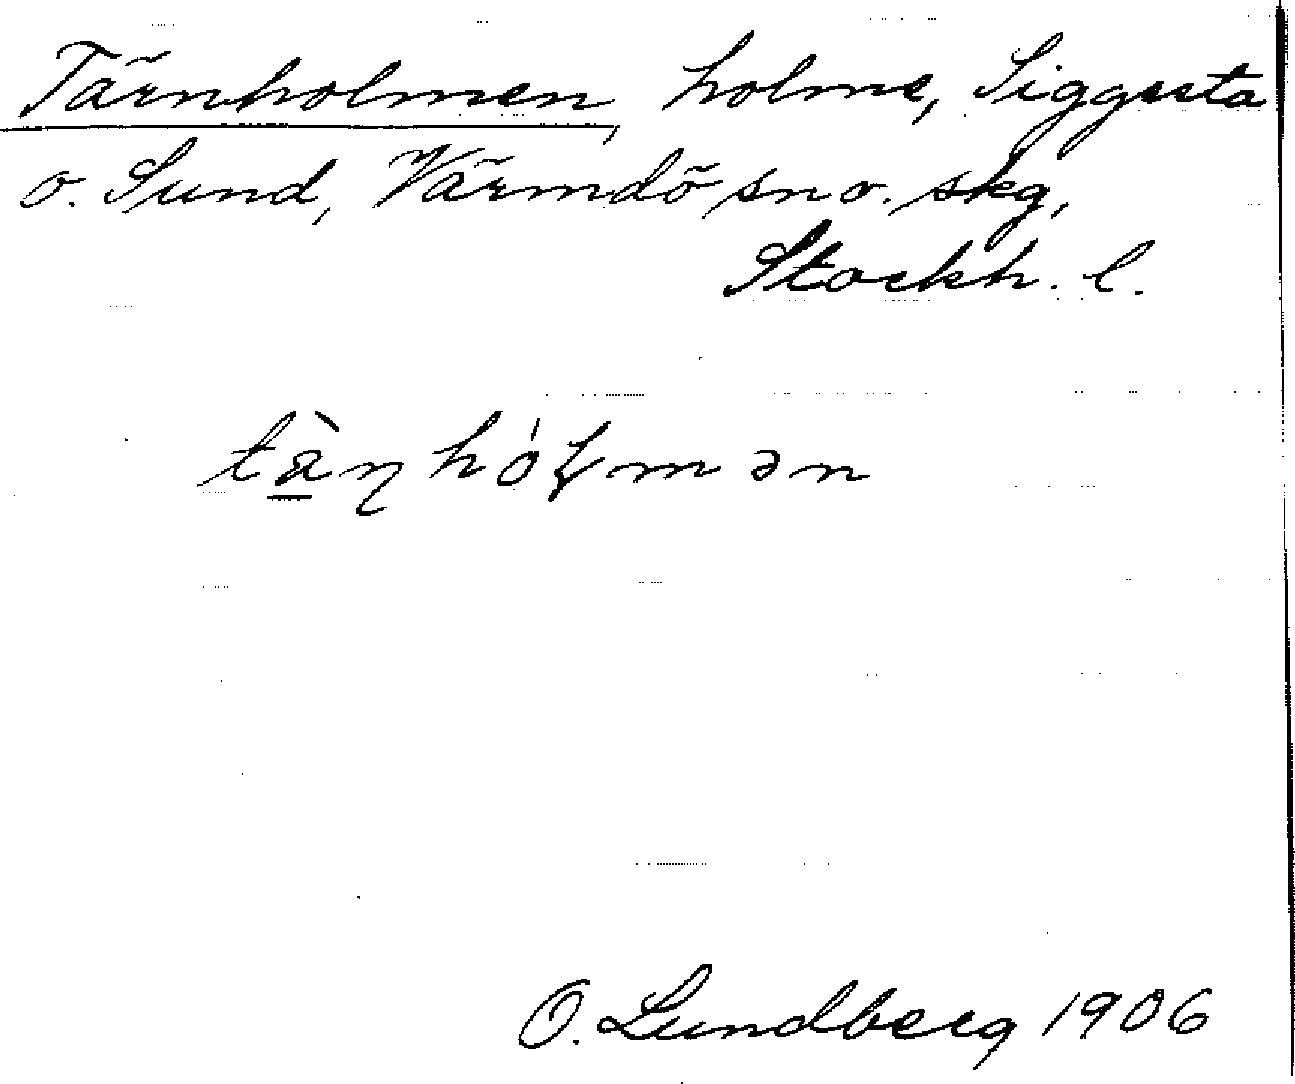 Tärnholmen, holme, Siggesta
o. Sund, Värmdö sn o. skg,
Stockh. l.
tä̀ɳhóɫmən
O. Lundberg 1906